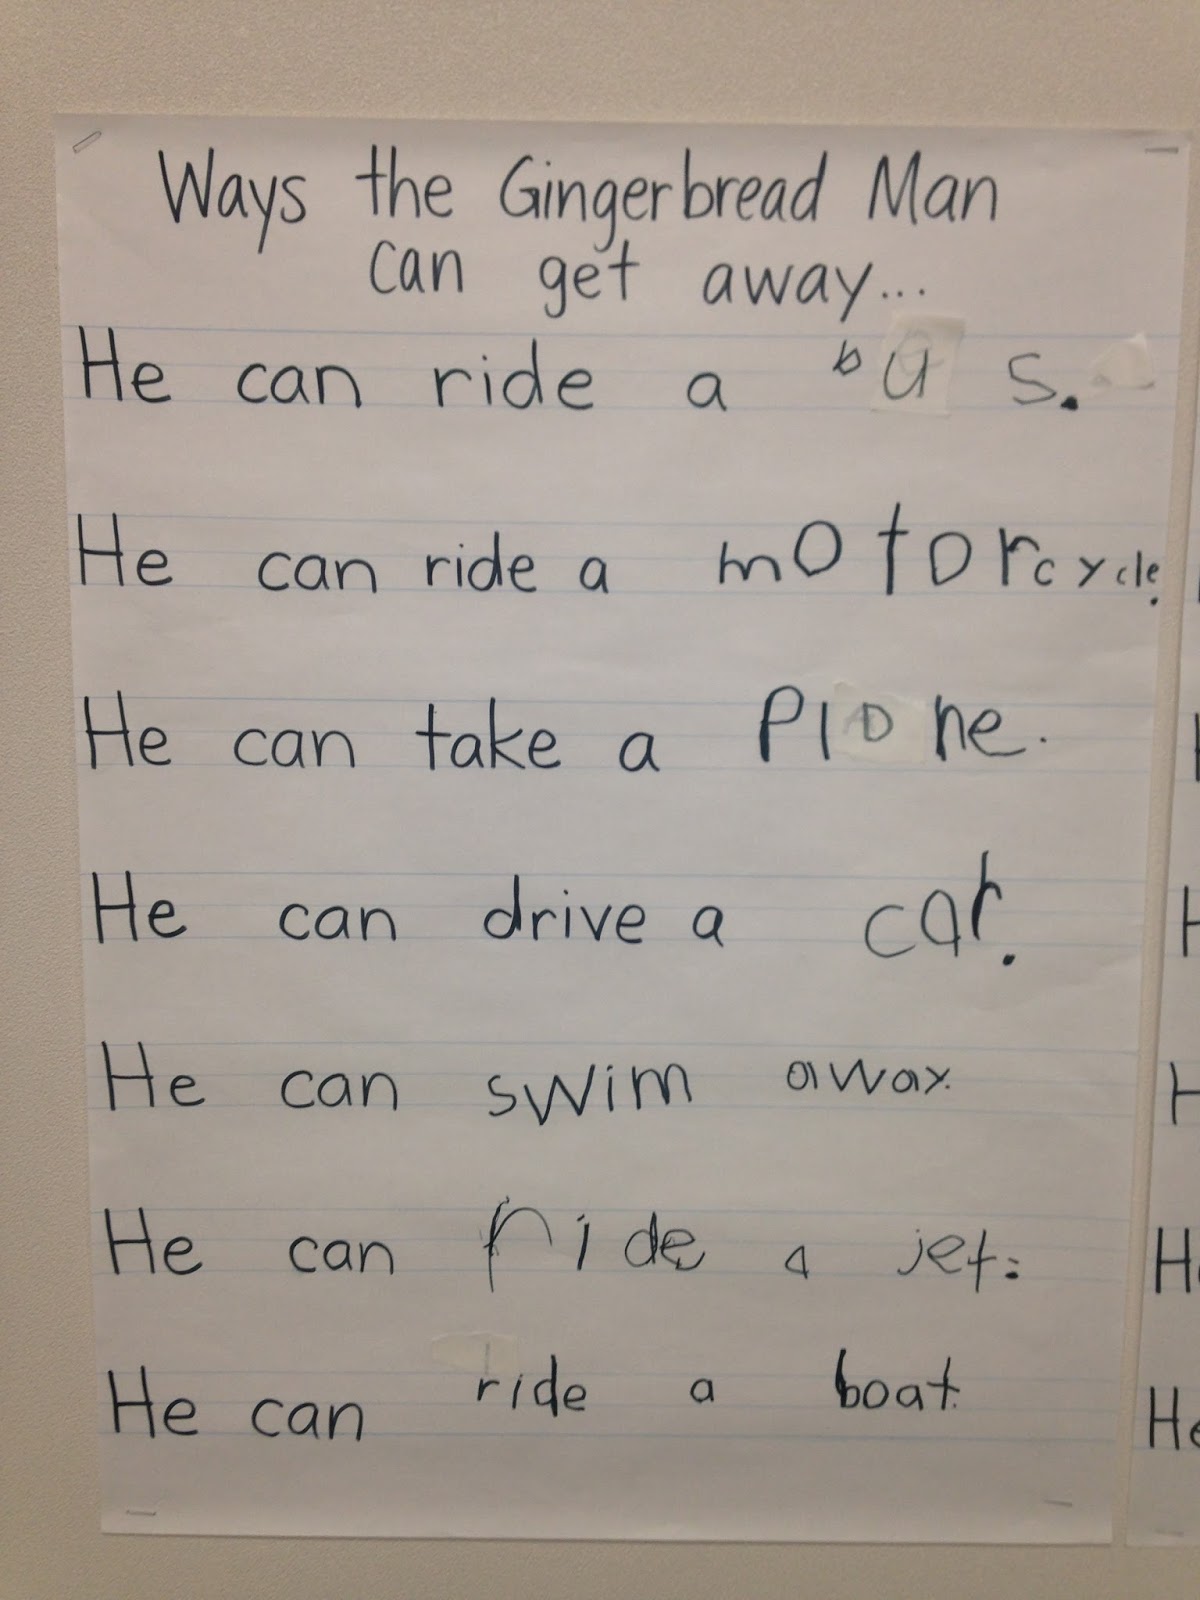 Ways the Gingerbread Man
can get away...
He can ride a bus.
He can ride a motorcycle.
He can take a Plane.
He can drive a car.
He can swim away.
He can ride a jet.
He can ride a boat.